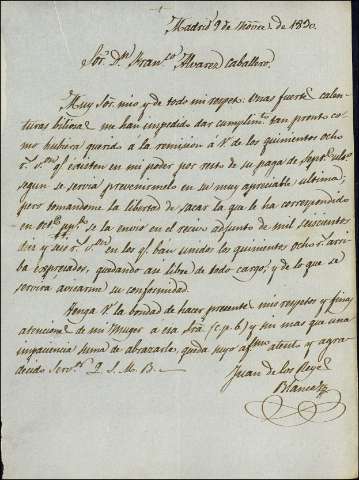 Madrid 9 de Novre. de 1830.
Sor. Dn. Franco. Alvarez Caballero.
Muy Sor. mio y de todo mi respeto. Unas fuertes calen-
turas biliosas me han impedido dar cumplimto. tan pronto
como hubiera querido a la remision á V. de los quinientos ocho
rs. que existen en mi poder por resto de su paga de Septe.
segun se servia prevenirmelo en su muy apreciable ultima;
pero tomandome la libertad de sacar la que le ha correspondido
en Octe. se la envio en el recivo adjunto de mil seiscientos
diez y seis rs. en los qe. ban unidos los quinientos ocho rs.
arriba expresados, quedando asi libre de todo cargo, y de lo que se
servira avisarme su conformidad.
Tenga V. la bondad de hacer presente mis respetos y finas
atenciones de mi Muger a esa Sra. (c.p.b.) y sin mas que una
impaciencia suma de abrazarle, queda suyo afmo. atento y agra-
decido Servor. Q. S. M. B.
Juan de los Reyes